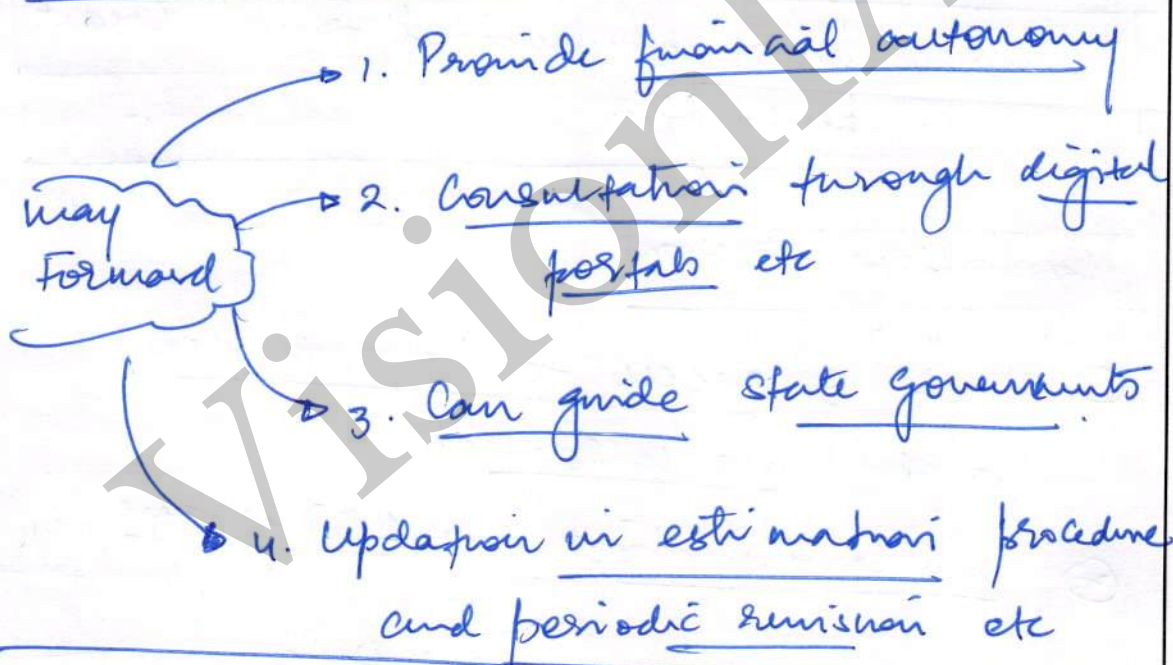 1. Provide financial autonomy
way
Forward
2. Consultation through digital
portals etc
3. Can guide state governments.
4. Updation in estimation procedure
and periodic revision etc
VisionIA